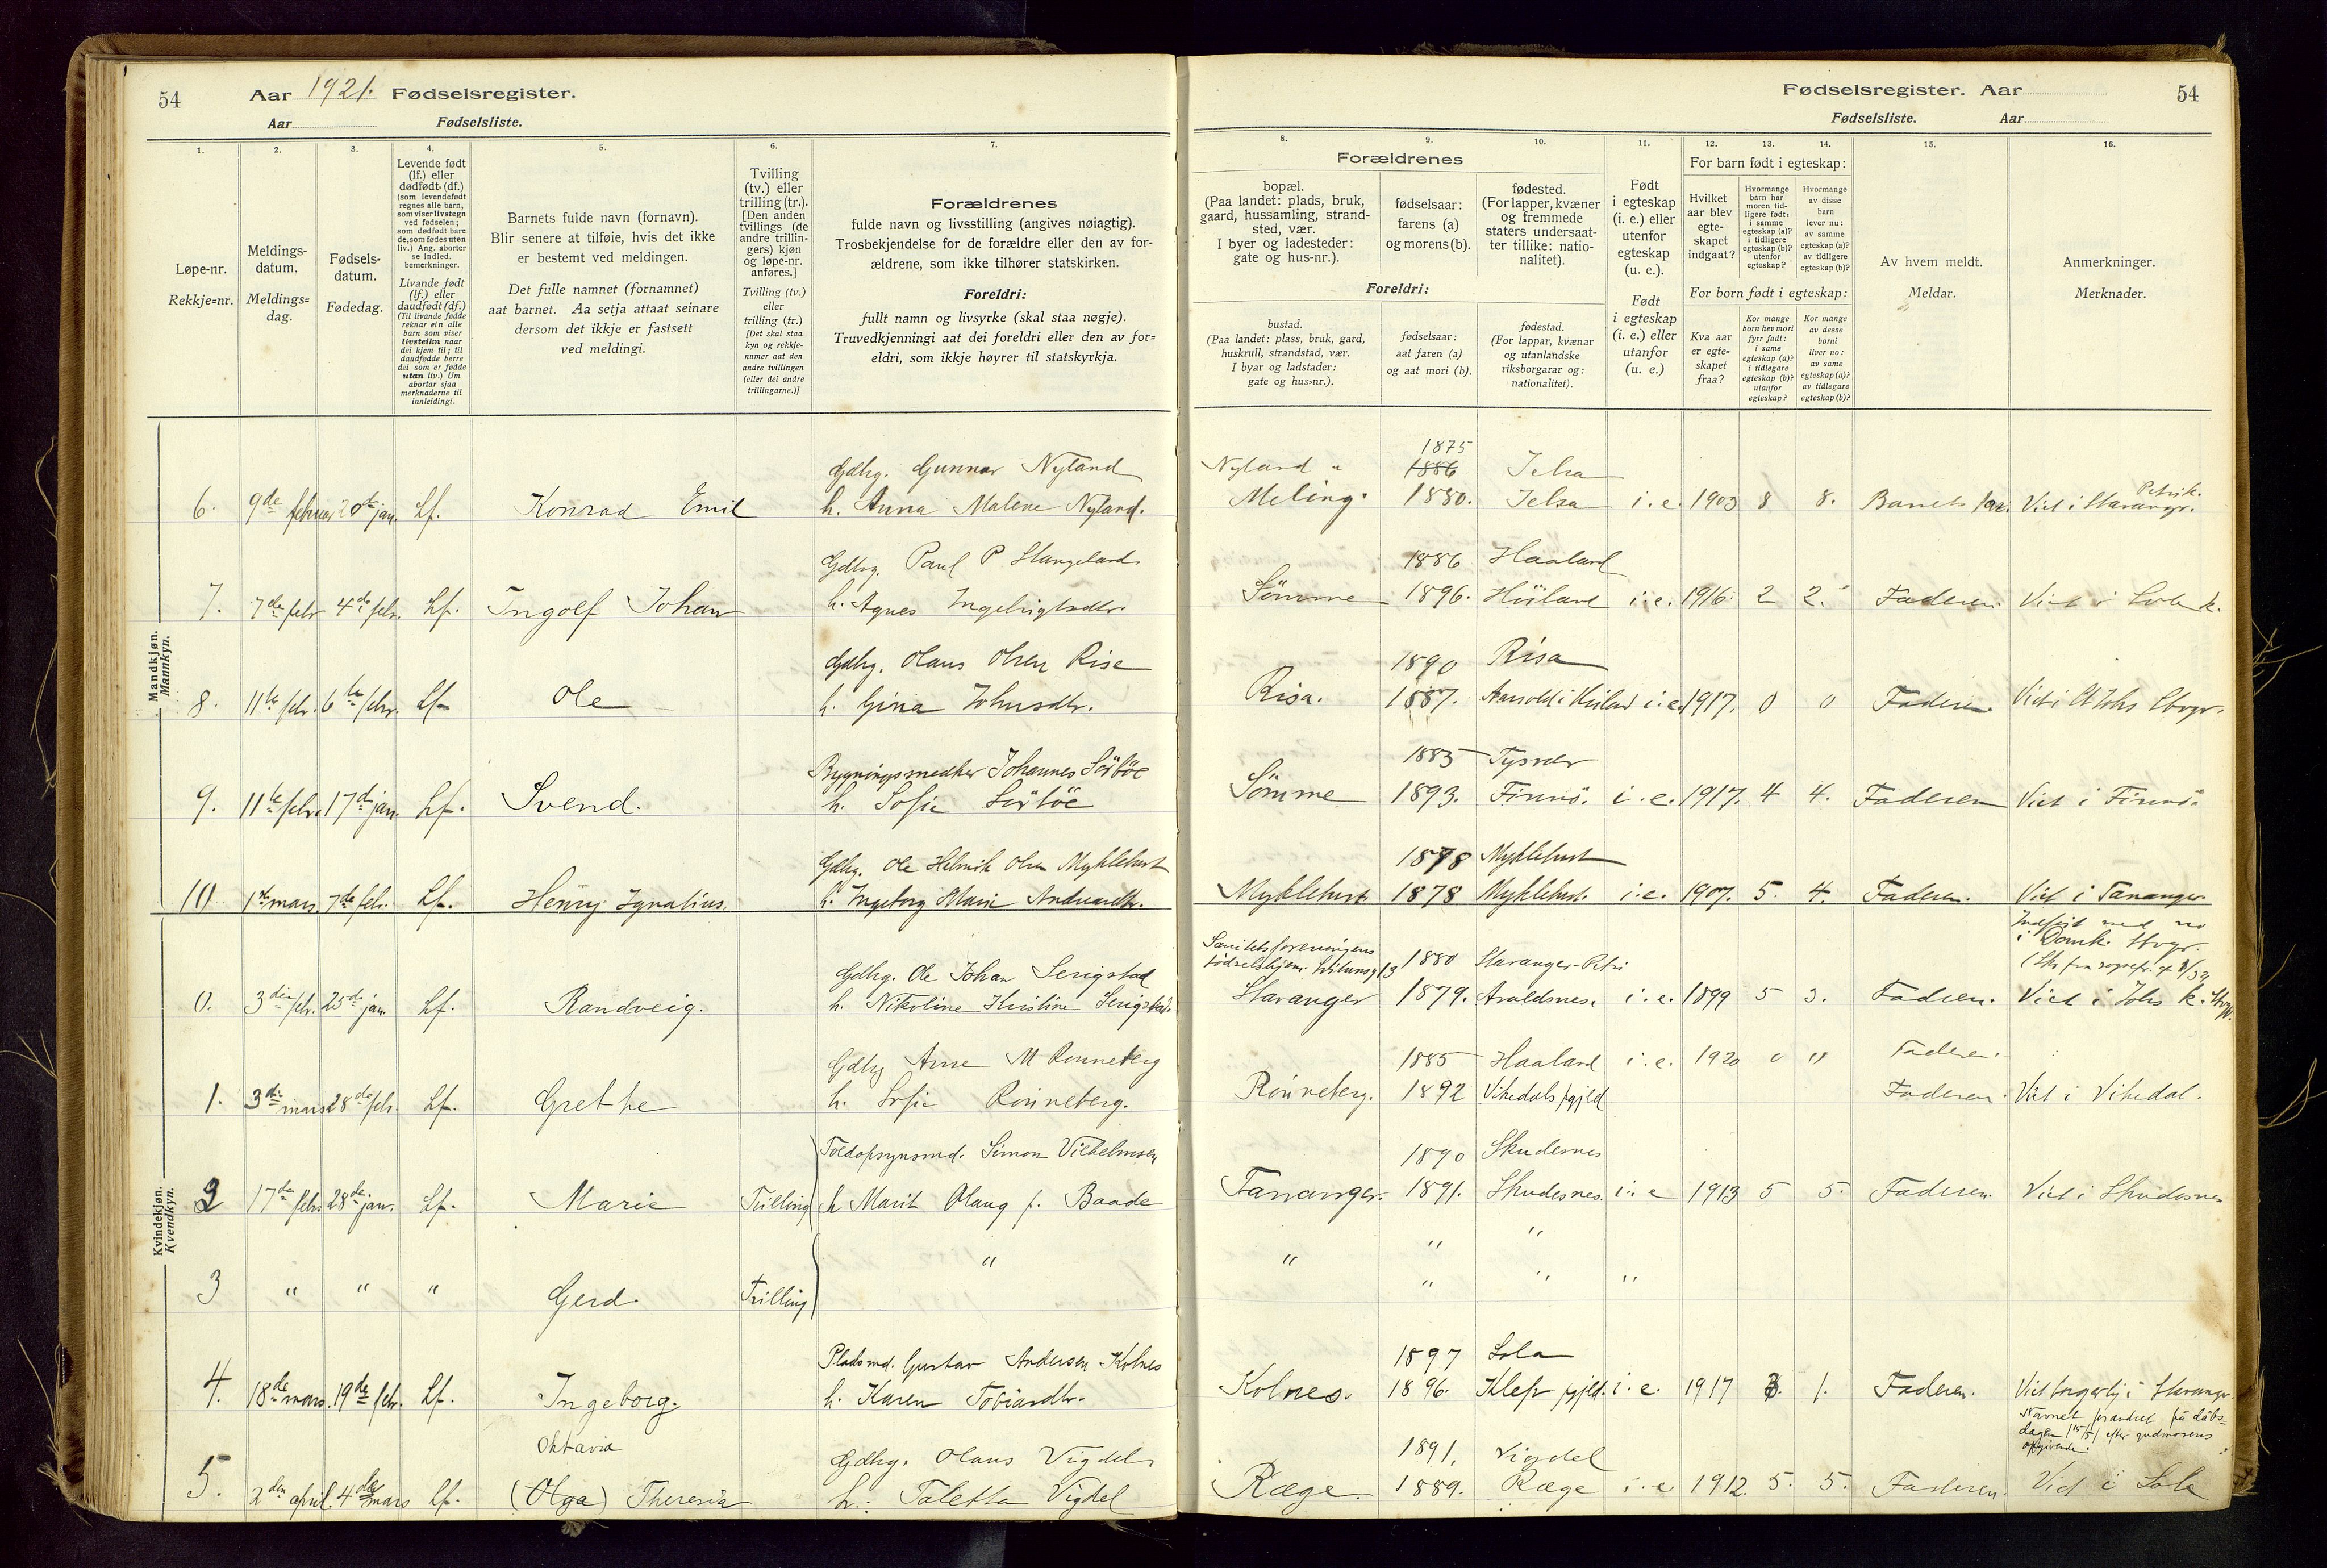 54 Aar 1921. Fødselsregister.
Aar Fødselsliste.
Fødselsregister. Aar 54
Fødselsliste. Aar
1. 2. 3. 4. 5. 6. 7.
Løpe-nr.
Rekkje=nr.
Meldings-
datum.
Meldings=
dag.
Fødsels-
datum.
Fødedag.
Levende født
(lf.) eller
dødfødt (df.)
(som levendefødt
regnes alle barn,
som viser livstegn
ved fødselen;
som dødfødt bare
de, som fødes uten
liv.) Ang. aborter
se indled.
bemerkninger.
Livande født
(lf.) eller
daudfødt (df.)
(Til livande fødde
reknar ein alle
barn som viser
livsteikn naar
dei kjem til; til
daudfødde berre
dei som er fødde
utan liv.) Um
abortar sjaa
merknaderne til
innleidingi.
Barnets fulde navn (fornavn).
Blir senere at tilføie, hvis det ikke
er bestemt ved meldingen.
Det fulle namnet (fornamnet)
aat barnet. Aa setja attaat seinare
dersom det ikkje er fastsett
ved meldingi.
Tvilling
(tv.) eller
trilling (tr.).
[Den anden
tvillings (de
andre trillin-
gers) kjøn
og løpe-nr.
anføres.]
Tvilling (tv.)
eller
trilling (tr.)
[Det skal staa
kyn og rekkje-
numer aat den
andre tvillingen
(eller dei andre
trillingarne.)]
Forældrenes
fulde navn og livsstilling (angives nøiagtig).
Trosbekjendelse for de forældre eller den av for-
ældrene, som ikke tilhører statskirken.
Foreldri:
fullt namn og livsyrke (skal staa nøgje).
Truvedkjenningi aat dei foreldri eller den av for=
eldri, som ikkje høyrer til statskyrkja.
8. 9. 10. 11. 12. 13. 14. 15. 16.
Forældrenes
bopæl.
(Paa landet: plads, bruk,
gaard, hussamling, strand-
sted, vær.
I byer og ladesteder:
gate og hus-nr.).
fødselsaar:
farens (a)
og morens (b).
fødested.
(For lapper, kvæner
og fremmede
staters undersaat-
ter tillike: natio-
nalitet).
Foreldri:
bustad.
(Paa landet: plass, bruk, gard,
huskrull, strandstad, vær.
I byar og ladstader:
gate og hus=nr.).
fødselsaar:
aat faren (a)
og aat mori (b).
fødestad.
(For lappar, kvænar
og utanlandske
riksborgarar og:
nationalitet).
Født
i egteskap
(i. e.) eller
utenfor
egteskap
(u. e.).
Født
i egteskap
(i. e.) eller
utanfor
(u. e.)
For barn født i egteskap:
Hvilket
aar blev
egte-
skapet
indgaat?
Hvormange
barn har
moren tid-
ligere født:
i samme
egteskap (a)?
i tidligere
egteskap (b)?
utenfor
egteskap?
Hvormange
av disse
barn
lever nu:
av samme
egteskap (a)?
av tidligere
egteskap (b)?
For born født i egteskap:
Kva aar
er egte=
skapet
fraa?
Kor mange
born hev mori
fyrr født:
i same
egteskap (a)?
i tidlegare
egteskap (b)?
utanfor
egteskap?
Kor mange
av desse
borni
liver no:
av same
egteskap (a)?
av tidlegare
egteskap (b)?
Av hvem meldt.
Meldar.
Anmerkninger.
Merknader.
Mandkjøn.
Mannkyn.
Gdbg. Gunnar Nyland Nyland " 1875 1886 Jelsa
6. 9de februar 20de jan. Lf. Konrad Emil h. Anna Malene Nyland. Meling. 1880. Jelsa i. e. 1903 8 8. Barnets far. Viet i Stavanger. Petrik.
Gdbg. Paul P Stangeland 1886 Haaland
7. 7de febr 4de febr. Lf. Ingolf Johan h. Agnes Ingebrigtsdtr. Sömme 1896. Höiland i. e. 1916. 2 2. Faderen. Viet i Sola k.
Gdbg. Olaus Olsen Risa 1890 Risa
8. 11te febr. 6te febr. Lf. Ole h. Gina Johnsdtr. Risa. 1887. i Höiland i. e. 1917. 0 0 Faderen. Viet i St Johs Stvgr.
Bygningssnedker Johannes Sörböe 1883 Tysvær
9. 11te febr. 17de jan. Lf. Svend. h. Sofie Sörböe Sömme 1893. Finnö. i. e. 1917. 4 4. Faderen Viet i Finnö.
Gdbg. Ole Helmik Olsen Myklebust 1878 Myklebust
10 1ste mars. 7de febr. Lf. Henry Ignatius. h. Ingeborg Marie Andreasdtr. Myklebust 1878 Myklebust. i. e. 1907. 5. 4. Faderen. Viet i Tananger
Kvindekjøn.
Kvendkyn.
Indført med no
i Domk. Stvgr.
Sanitetsforeningens
födselshjem.
Gdbg. Ole Johan Serigstad 1880 Stavanger-Petri
0. 3die febr. 25de jan. Lf. Randveig. h. Nikoline Kristine Serigstad. Stavanger 1879. Avaldsnes. i. e. 1899 5 3. Faderen. Viet i Johs k. Stvgr.
Gdbg Arne M Rönneberg 1885 Haaland i. e. 1920 0 " Faderen.
1. 3die mars 28de febr. Lf. Grethe h. Sofie Rönneberg. Rönneberg. 1892 Vikedals pgjeld Faderen. Viet i Vikedal.
Toldopsynsmd. Simon Vilhelmsen 1890 Skudesnes
2 17de febr. 28de jan. Lf. Marie Trilling h Marit Olaug f. Baade Tananger. 1891. Skudesnes. i. e 1913 5 5. Faderen. Viet i Skudesnes
" " "
3 " " " Gerd. Trilling " " " "
Pladsmd. Gustav Andersen Kolnes 1897 Sola
4. 18de mars. 19de febr. Lf. Ingeborg. h. Karen Tobiasdtr. Kolnes. 1896. Klepp pgjeld. i. e. 1917 3. 1. Faderen. Viet borgerlig i Stavanger.
Navnet forandret på dåbs-
dagen efter gudmorens
opgivende.
Oktavia Gdbg. Olaus Vigdel 1891. Vigdel
5. 2den april. 4de mars Lf. (Olga) Theresia h. Taletta Vigdel Ræge. 1889. Ræge i. e 1912. 5. 5. Faderen. Viet i Sola